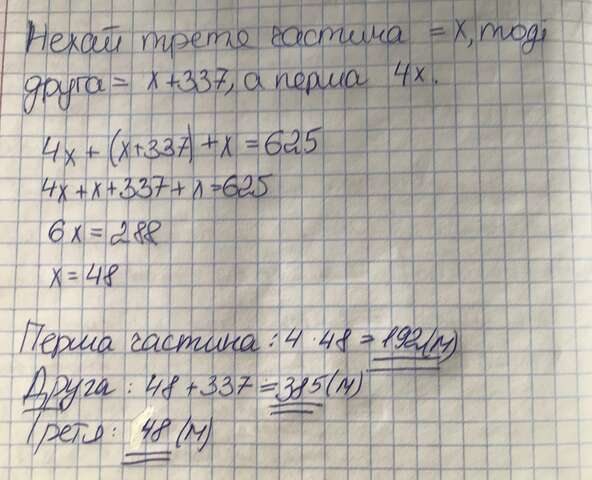 Нехай третя частина = х, тоді
друга = х+337, а перша 4х.
4х + (х+337) + х = 625
4х + х + 337 + х = 625
6х = 288
х = 48
Перша частина : 4 · 48 = 192 (м)
Друга : 48 + 337 = 385 (м)
Третя : 48 (м)